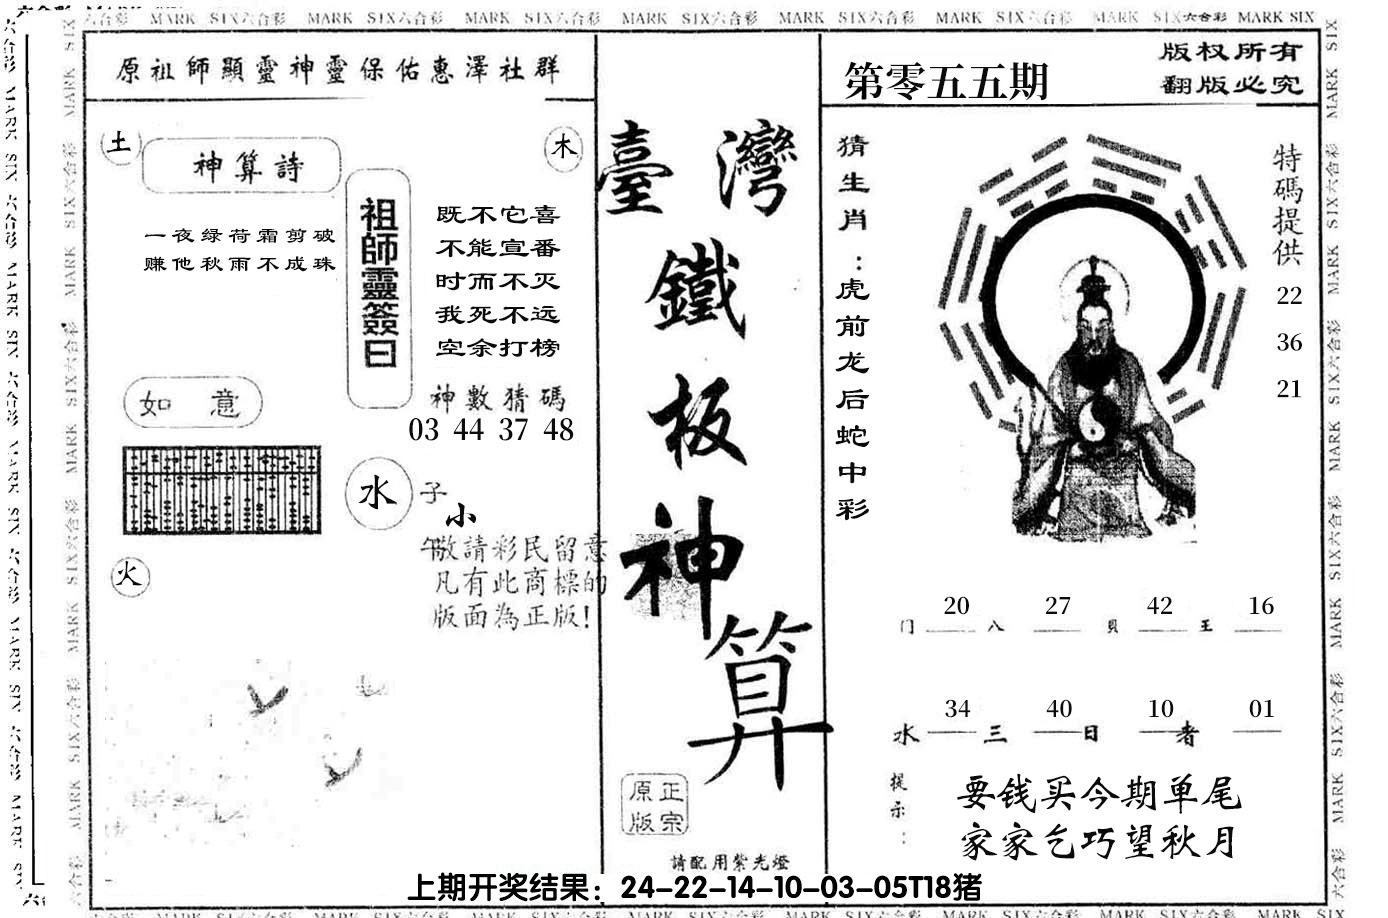 MARK SIX六合彩 MARK SIX六合彩 MARK SIX六合彩 MARK SIX六合彩 MARK SIX六合彩 MARK SIX六合彩 MARK SIX六合彩 MARK SIX
原祖師顯靈神靈保佑惠澤社群
土
神算詩
木
一夜绿荷霜剪破
赚他秋雨不成珠
祖師靈簽曰
既不它喜
不能宣番
时而不灭
我死不远
空余打榜
如意
神數猜碼
03 44 37 48
水
子
小
午
敬請彩民留意
凡有此商標的
版面為正版!
火
臺灣
鐵
板
神
算
正宗
原版
請配用紫光燈
第零五五期
版权所有
翻版必究
猜生肖:虎前龙后蛇中彩
特碼提供
22
36
21
20 27 42 16
门 八 貝 王
34 40 10 01
水 三 日 者
提示:
要钱买今期单尾
家家乞巧望秋月
上期开奖结果：24-22-14-10-03-05T18猪